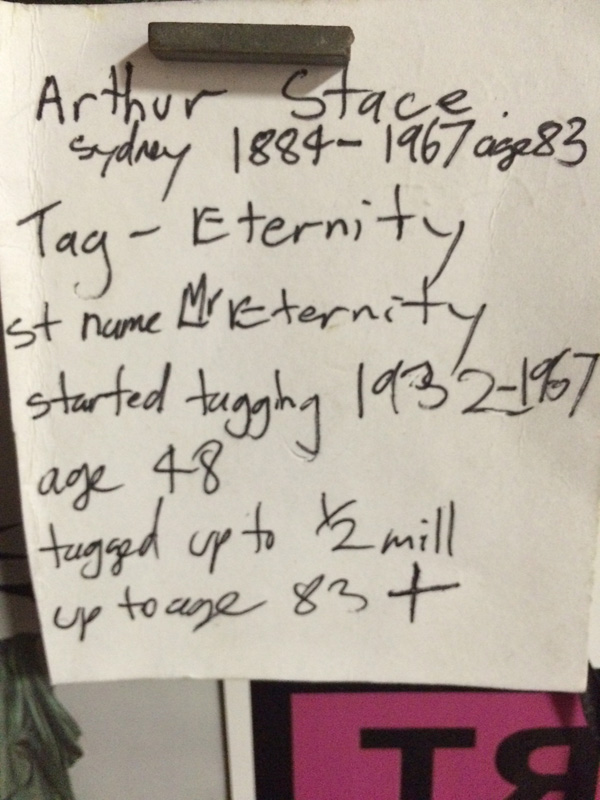 Arthur Stace.
Sydney 1884-1967 age 83
Tag - Eternity
st name Mr Eternity
started tagging 1932-1967
age 48
tagged up to 1/2 mill
up to age 83 +
TR